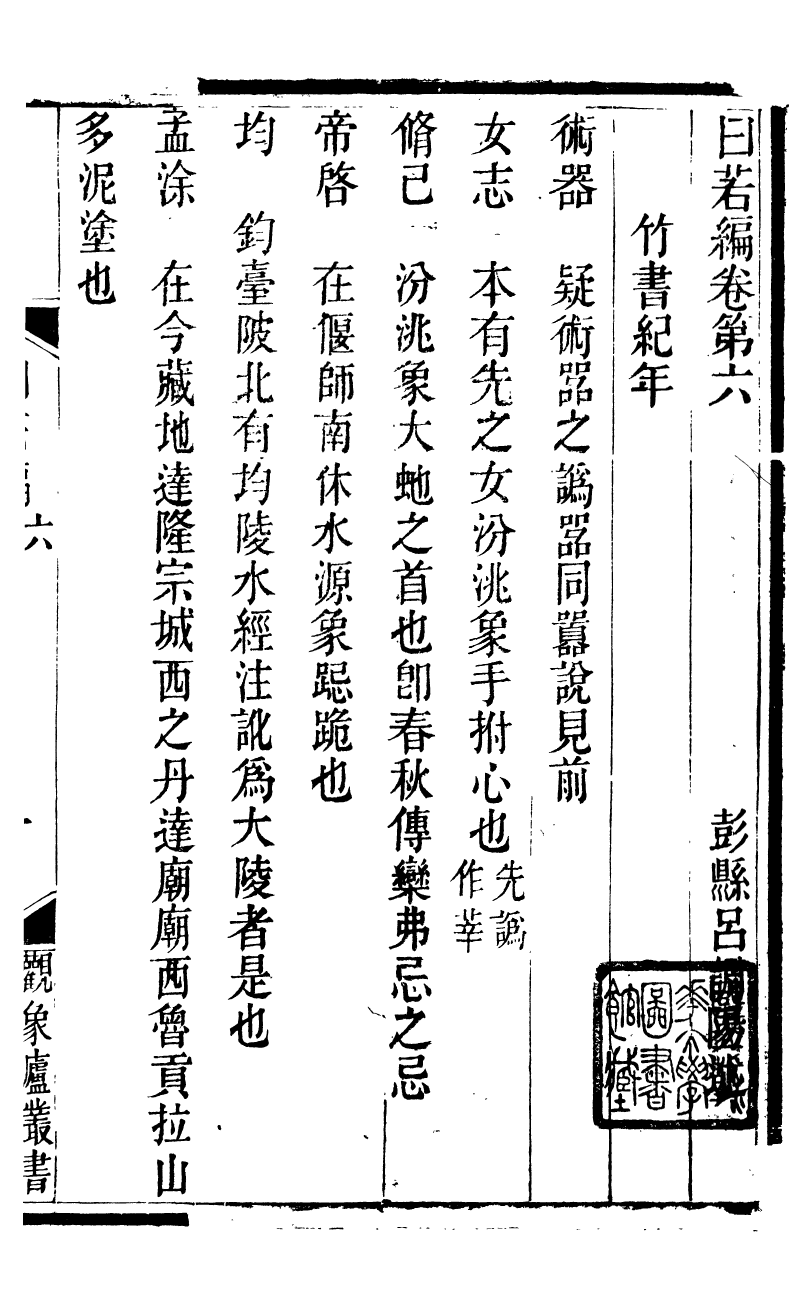 曰若編卷第六　彭縣呂調陽述
竹書紀年
術器　疑術㗊之譌㗊同囂說見前
女志　本有先之女汾洮象手拊心也先譌作莘
脩己　汾洮象大虵之首也卽春秋傳欒弗忌之忌
帝啓　在偃師南休水源象跽跪也
均　鈞臺陂北有均陵水經注訛爲大陵者是也
孟涂　在今藏地達隆宗城西之丹達廟廟西魯貢拉山
多泥塗也
六
觀象廬叢書